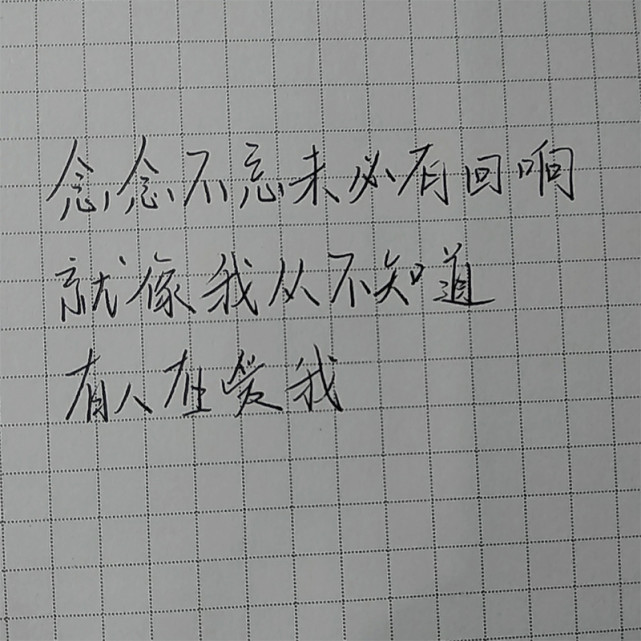 念念不忘未必有回响
就像我从不知道
有人在爱我